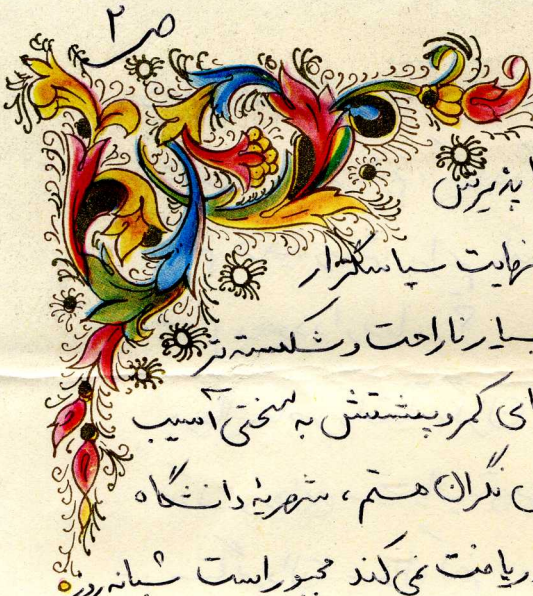 ص ۲
پذیرش
نهایت سپاسگزار
بسیار ناراحت و شکسته تر
ای کمر و پشتش به سختی آسیب
نگران هستم ، شهریهٔ دانشگاه
دریافت نمی کند مجبور است شبانه روز